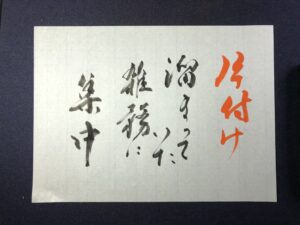 片付け
溜まって
いた
雑務に
集中